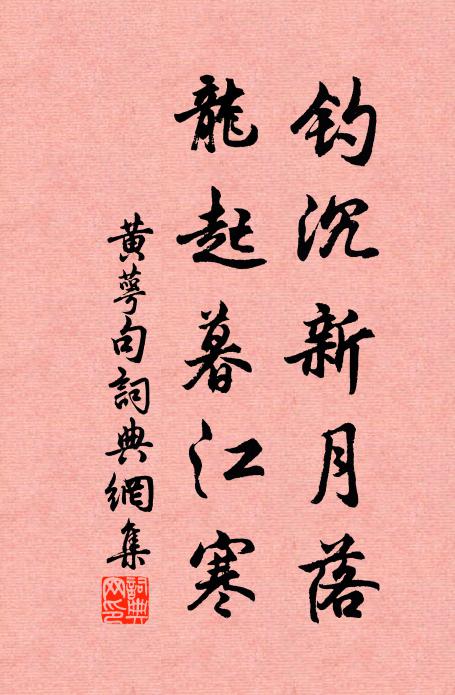 钓沉新月落
龍起暮江寒
黃蕚句詞典網集
詞典网印